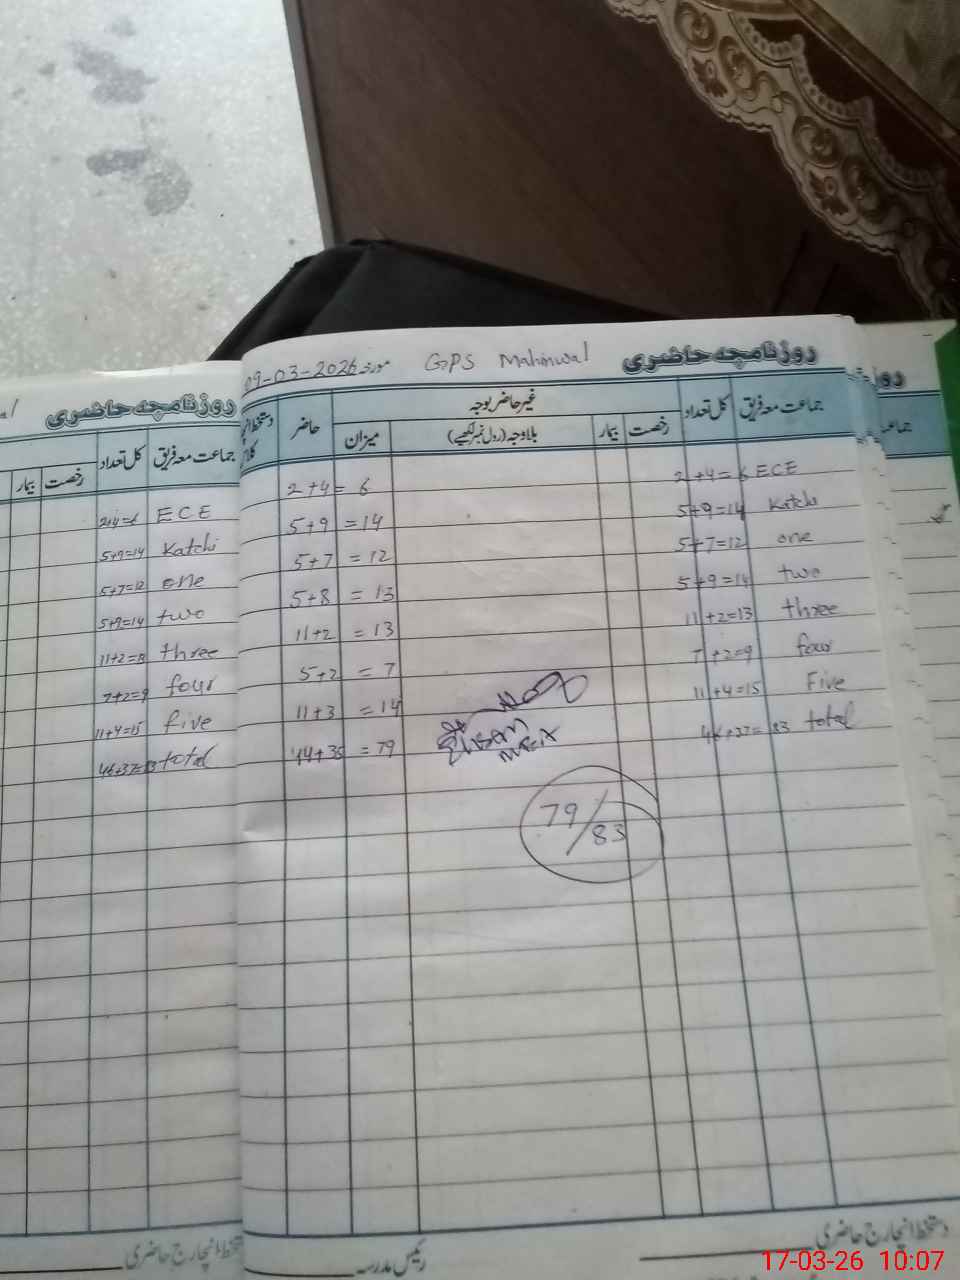 روزنامچہ حاضری
جماعت معہ فریق کل تعداد رخصت بیمار
ECE 2+4=6
Katchi 5+9=14
one 5+7=12
two 5+9=14
three 11+2=13
four 7+2=9
five 11+4=15
total 46+37=83
روزنامچہ حاضری GPS Mahinwal مورخہ 09-03-2026
جماعت معہ فریق کل تعداد غیر حاضر بوجہ حاضر
رخصت بیمار بلاوجہ (رول نمبر لکھیے) میزان
ECE 2+4=6 2+4=6
Katchi 5+9=14 5+9=14
one 5+7=12 5+7=12
two 5+9=14 5+8=13
three 11+2=13 11+2=13
four 7+2=9 5+2=7
Five 11+4=15 11+3=14
total 46+37=83 44+35=79
79/83
دستخط انچارج حاضری
رئیس مدرسہ
دستخط انچارج حاضری
17-03-26 10:07